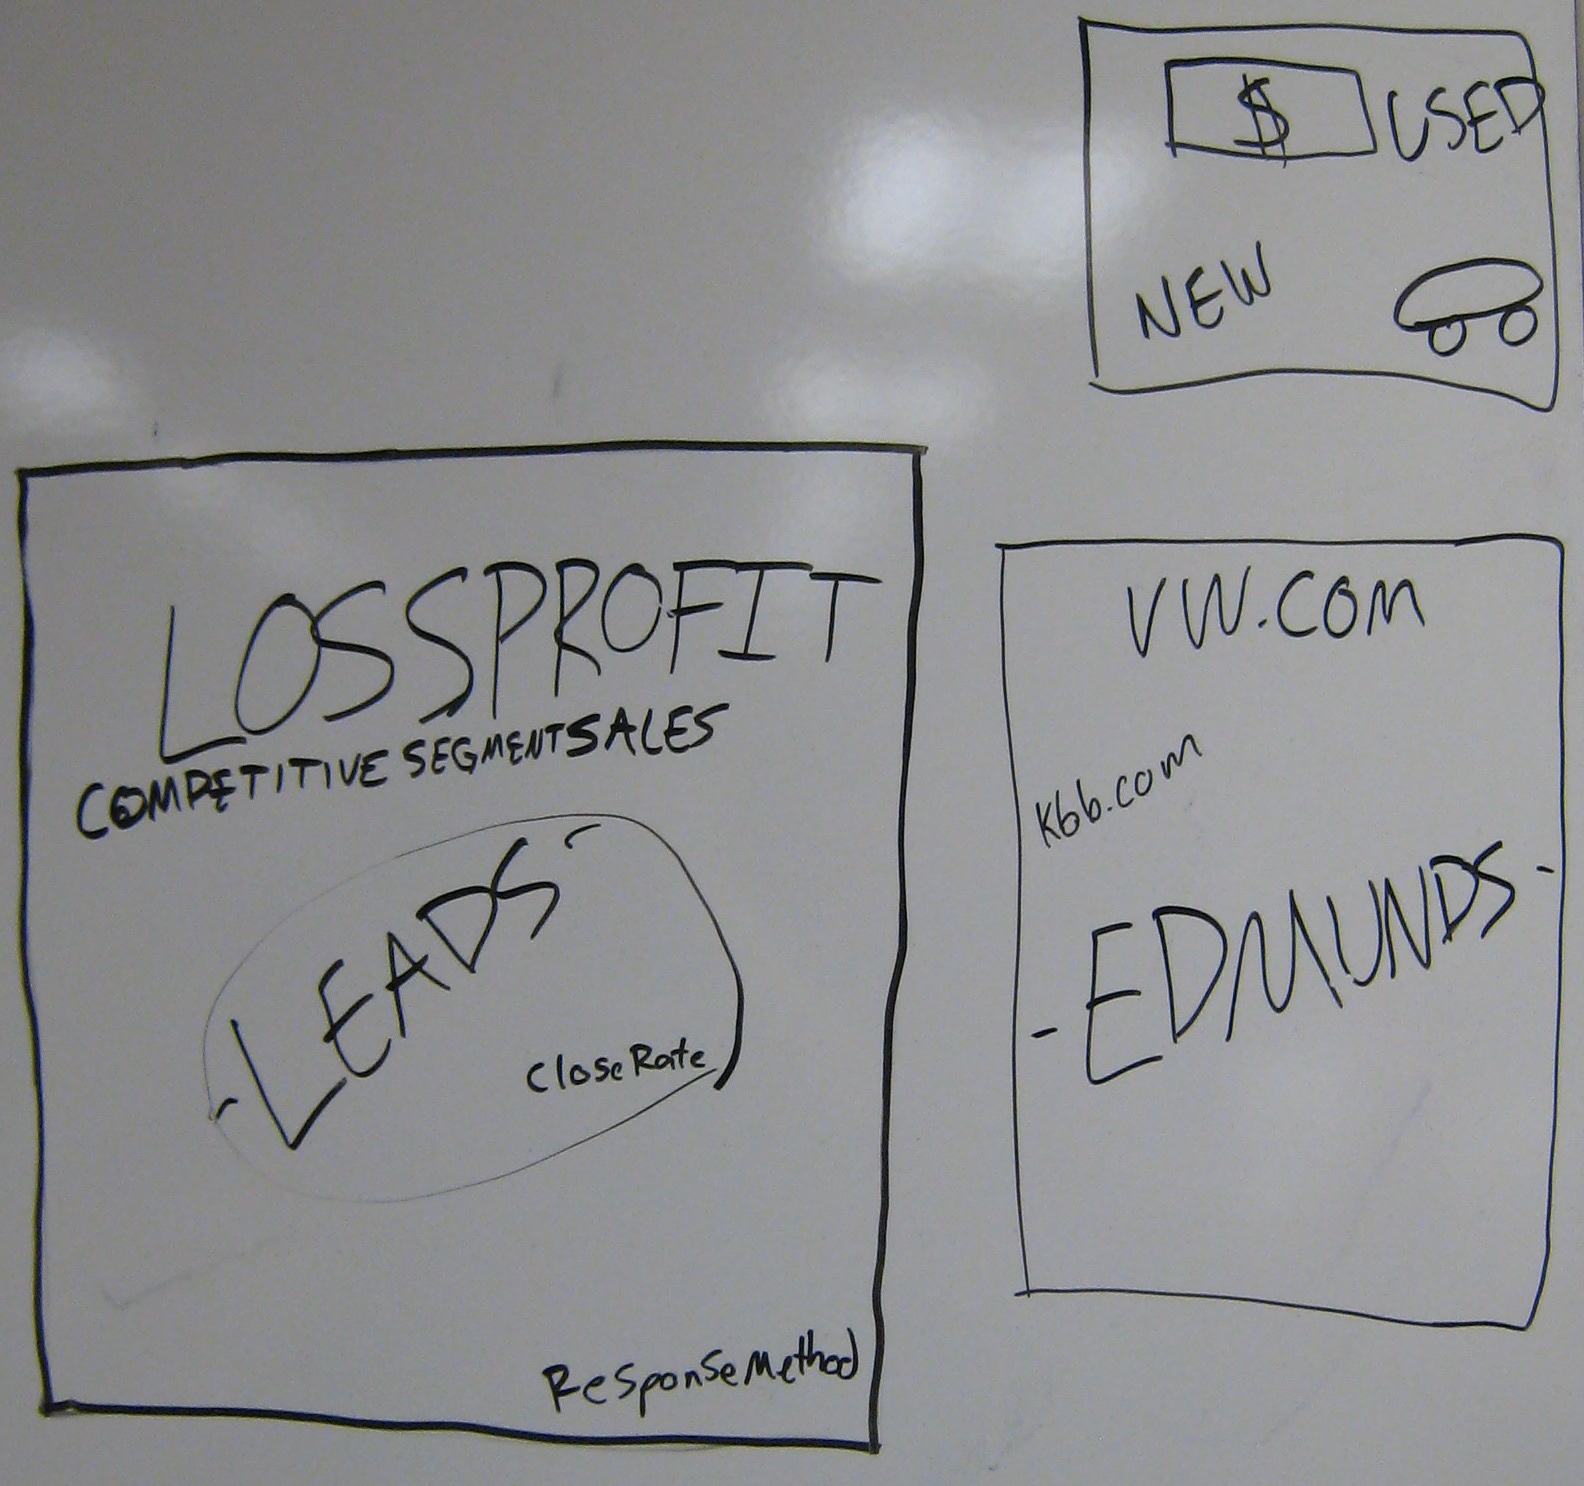 $ USED
NEW
LOSSPROFIT
COMPETITIVE SEGMENTSALES
-LEADS-
CloseRate
ResponseMethod
VW.COM
Kbb.com
-EDMUNDS-